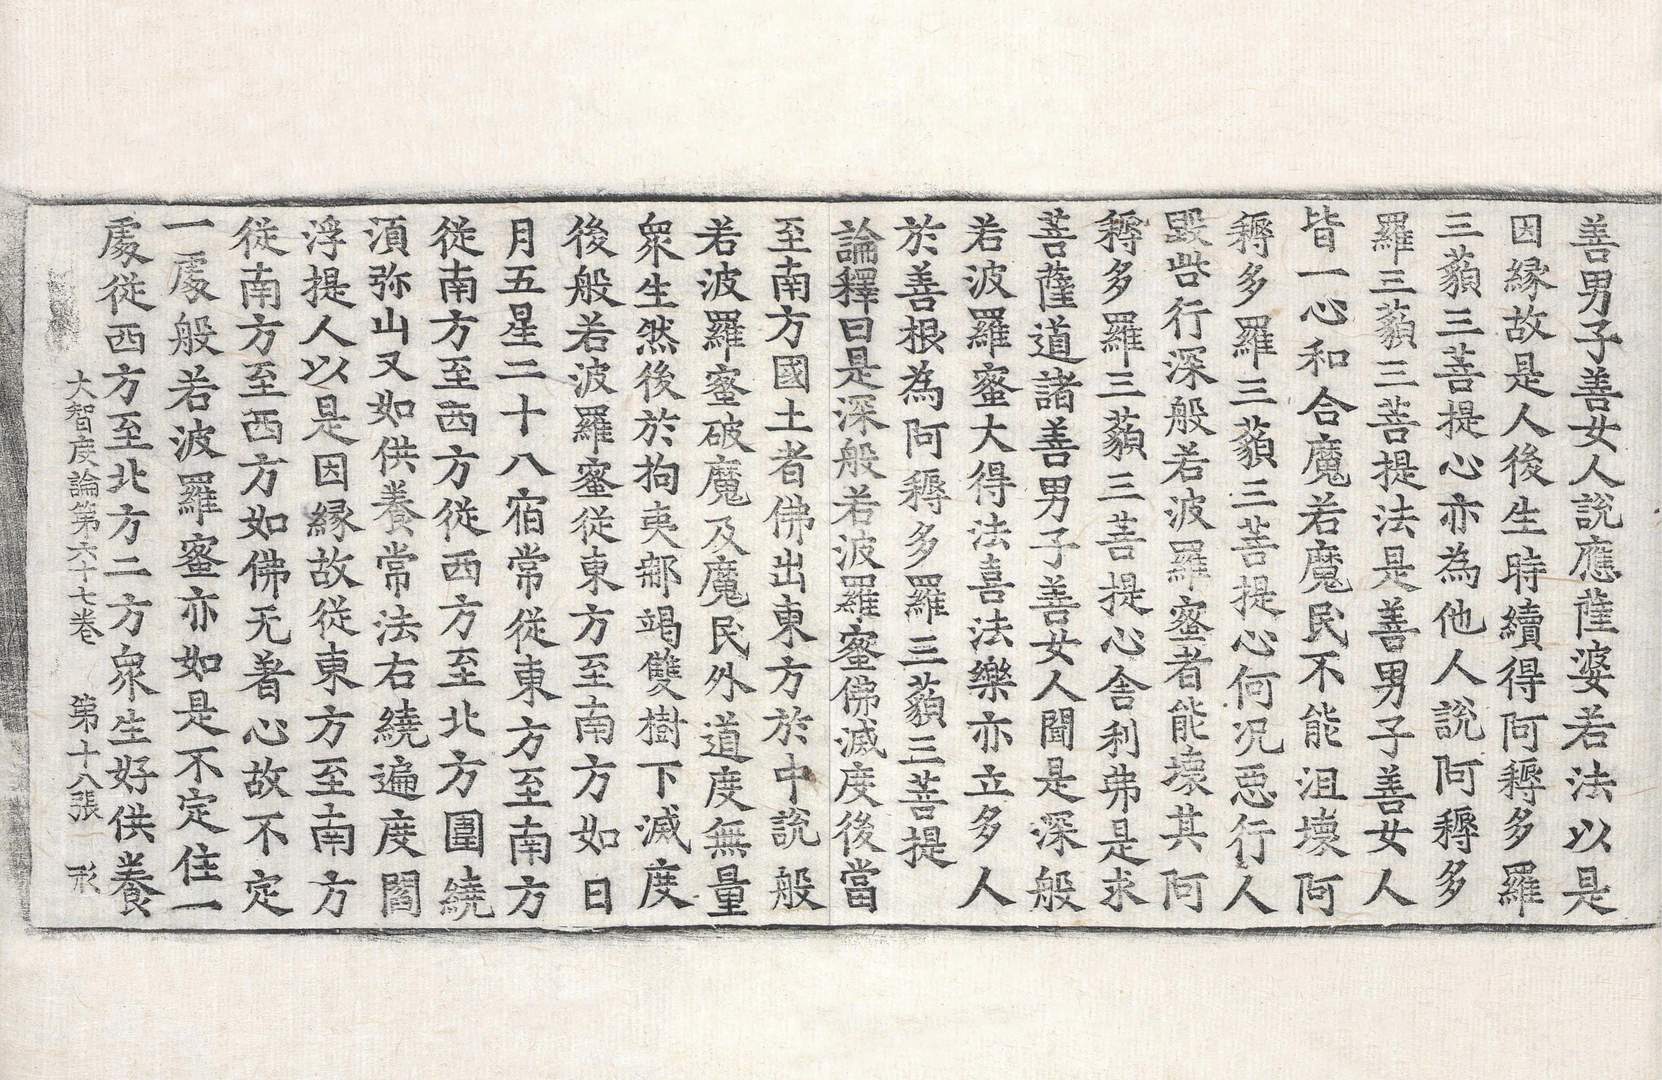 善男子善女人說應薩婆若法以是
因緣故是人後生時續得阿耨多羅
三藐三菩提心亦為他人說阿耨多
羅三藐三菩提法是善男子善女人
皆一心和合魔若魔民不能沮壞阿
耨多羅三藐三菩提心何況惡行人
毀呰行深般若波羅蜜者能壞其阿
耨多羅三藐三菩提心舍利弗是求
菩薩道諸善男子善女人聞是深般
若波羅蜜大得法喜法樂亦立多人
於善根為阿耨多羅三藐三菩提
論釋曰是深般若波羅蜜佛滅度後當
至南方國土者佛出東方於中說般
若波羅蜜破魔及魔民外道度無量
眾生然後於拘夷那竭雙樹下滅度
後般若波羅蜜從東方至南方如日
月五星二十八宿常從東方至南方
從南方至西方從西方至北方圍繞
須弥山又如供養常法右繞遍度閻
浮提人以是因緣故從東方至南方
從南方至西方如佛无著心故不定
一處般若波羅蜜亦如是不定住一
處從西方至北方二方眾生好供養
大智度論第六十七卷 第十八張 形